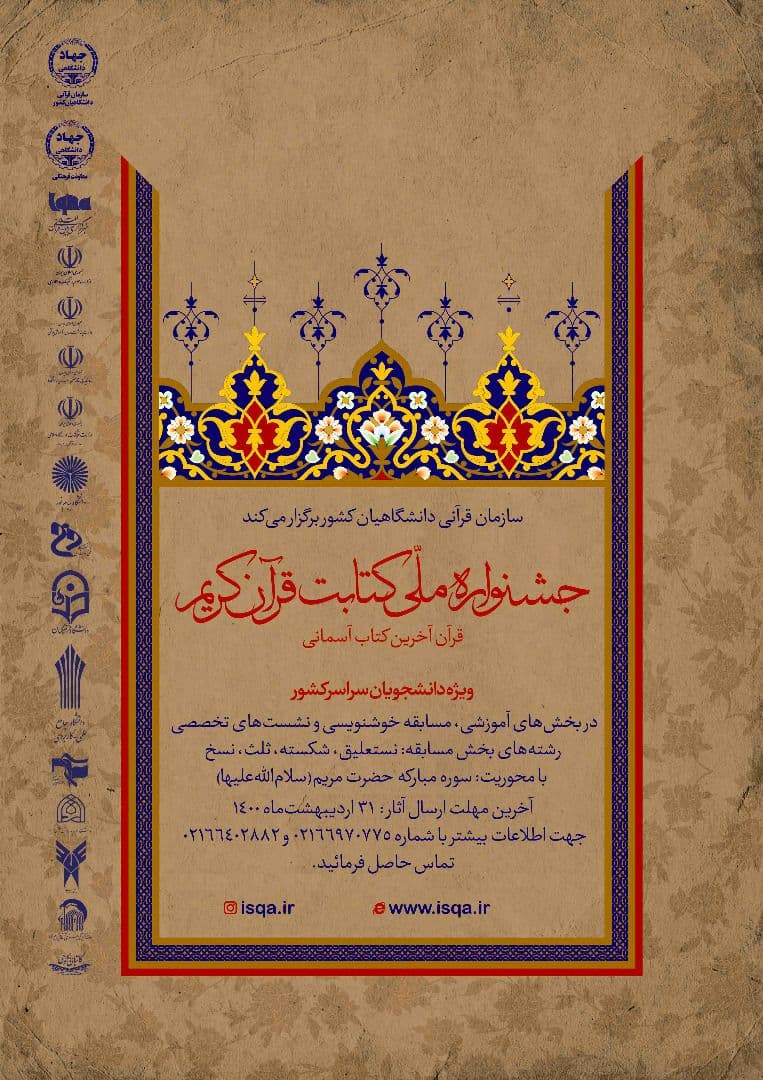 جهاد
دانشگاهی
سازمان قرآنی
دانشگاهیان کشور
جهاد
دانشگاهی
معاونت فرهنگی
iqna
سازمان قرآنی دانشگاهیان کشور برگزار می‌کند
جشنواره ملّی کتابت قرآن کریم
قرآن آخرین کتاب آسمانی
ویژه دانشجویان سراسر کشور
در بخش‌های آموزشی، مسابقه خوشنویسی و نشست‌های تخصصی
رشته‌های بخش مسابقه: نستعلیق، شکسته، ثلث، نسخ
با محوریت: سوره مبارکه حضرت مریم (سلام‌الله‌علیها)
آخرین مهلت ارسال آثار: ۳۱ اردیبهشت‌ماه ۱۴۰۰
جهت اطلاعات بیشتر با شماره ۰۲۱۶۶۹۷۰۷۷۵ و ۰۲۱۶۶۴۰۲۸۸۲
تماس حاصل فرمائید.
isqa.ir
www.isqa.ir